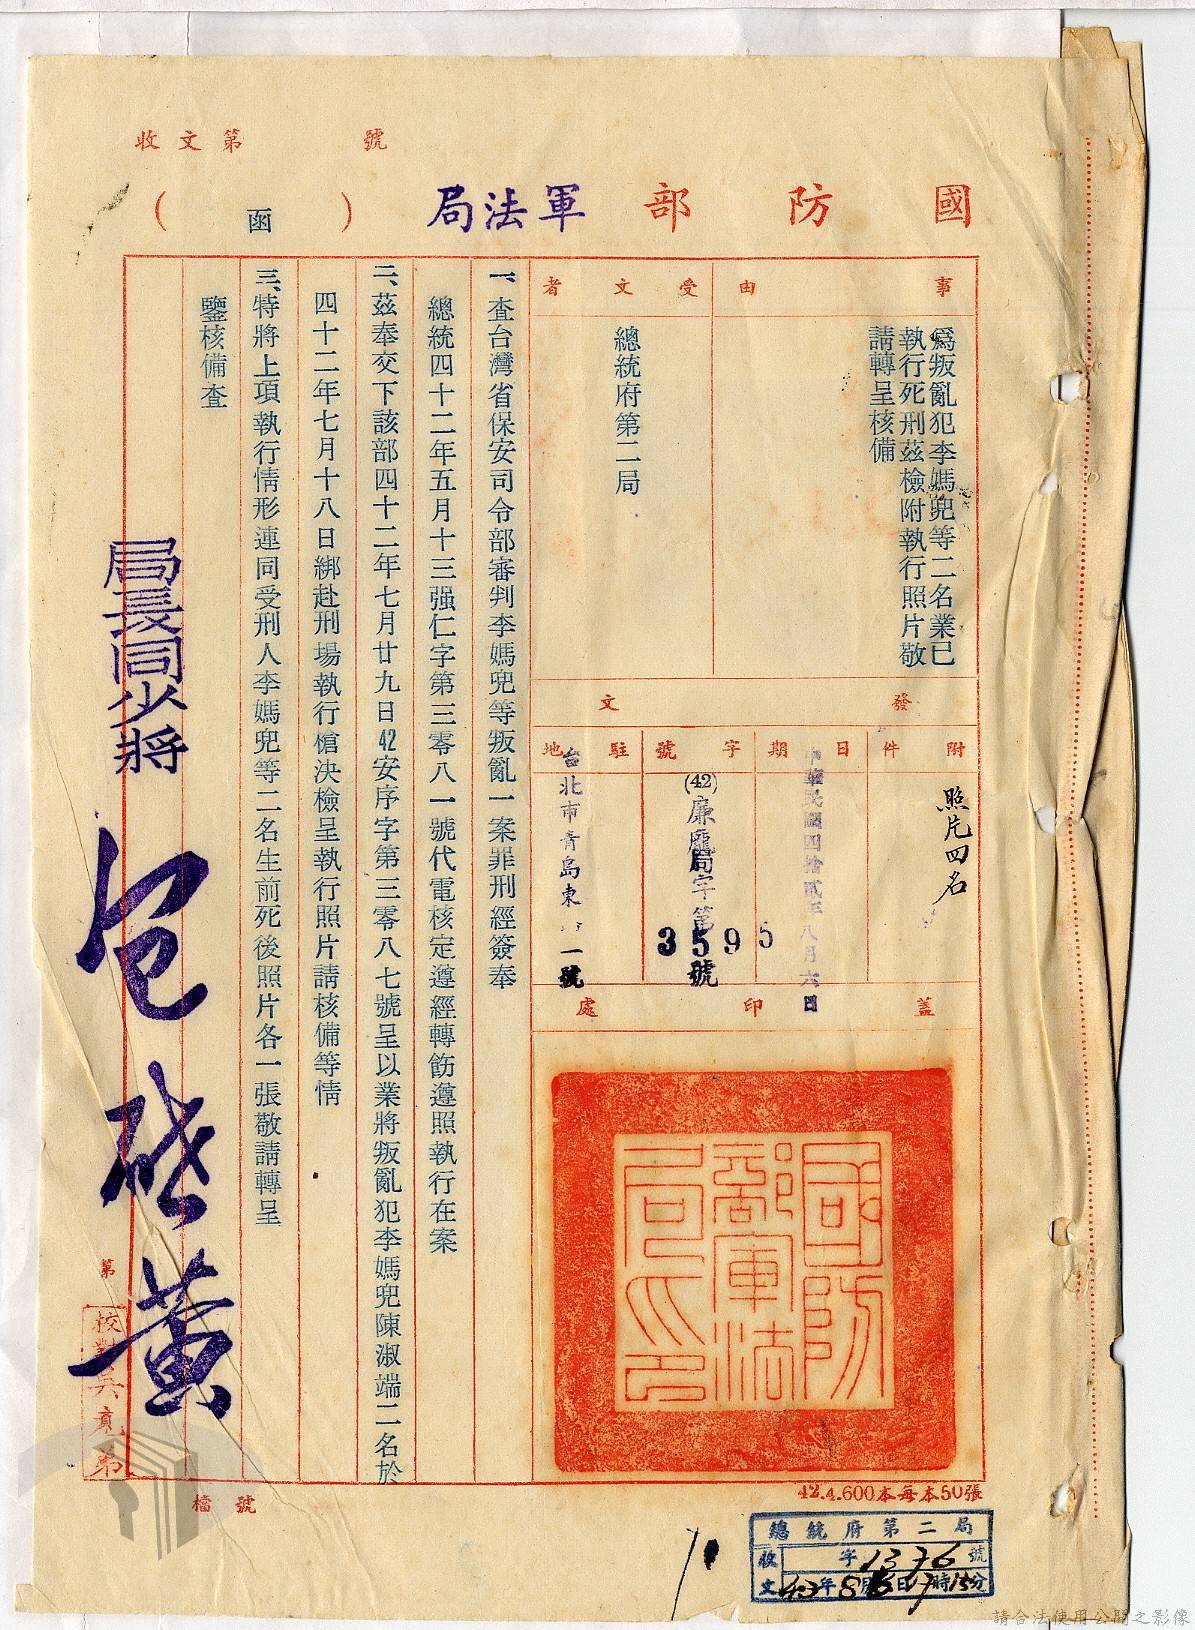 收文第　　號
國防部軍法局（函）
事由
為叛亂犯李媽兜等二名業已
執行死刑茲檢附執行照片敬
請轉呈核備
受文者
總統府第二局
發文
附件
照片四名
日期
中華民國四拾貳年八月六日
字號
(42)廉龐局字第3595號
駐地
台北市青島東一號
蓋印處
國防部軍法局印
一、查台灣省保安司令部審判李媽兜等叛亂一案罪刑經簽奉
總統四十二年五月十三强仁字第三零八一號代電核定遵經轉飭遵照執行在案
二、茲奉交下該部四十二年七月廿九日42安序字第三零八七號呈以業將叛亂犯李媽兜陳淑端二名於
四十二年七月十八日綁赴刑場執行槍決檢呈執行照片請核備等情
三、特將上項執行情形連同受刑人李媽兜等二名生前死後照片各一張敬請轉呈
鑒核備查
局長同少將　包啟黃
第
校對吳
檔號
42.4.600本每本50張
總統府第二局
收　字1376號
文42年8月　日　時15分
請合法使用公開之影像